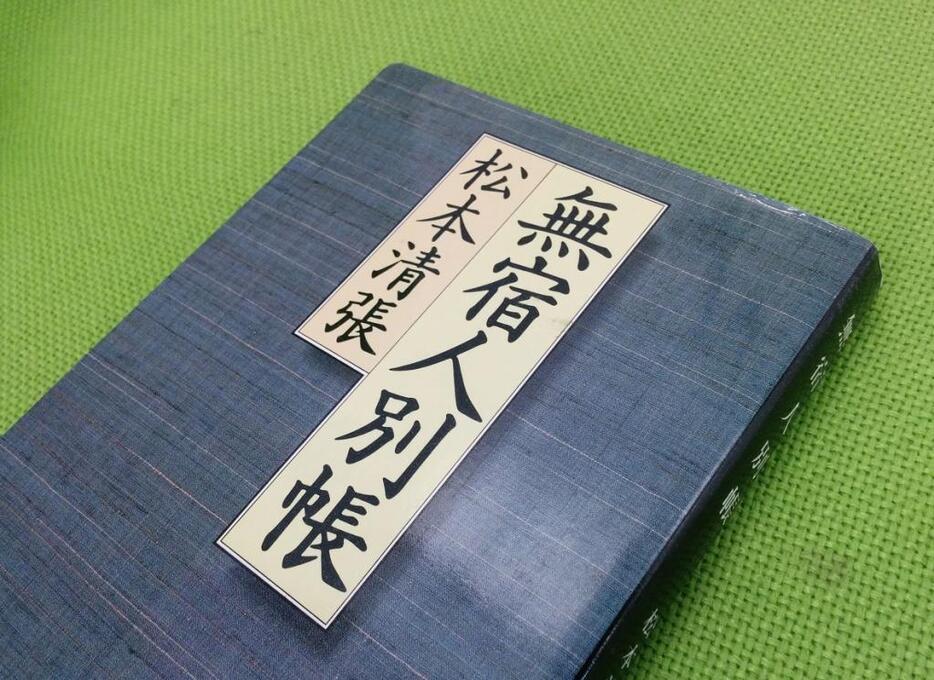 無宿人別帳
松本清張
無宿人別帳
松本